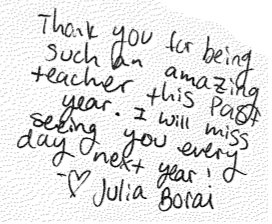 Thank you for being
such an amazing
teacher this past
year. I will miss
seeing you every
day next year!
-♡ Julia Borai